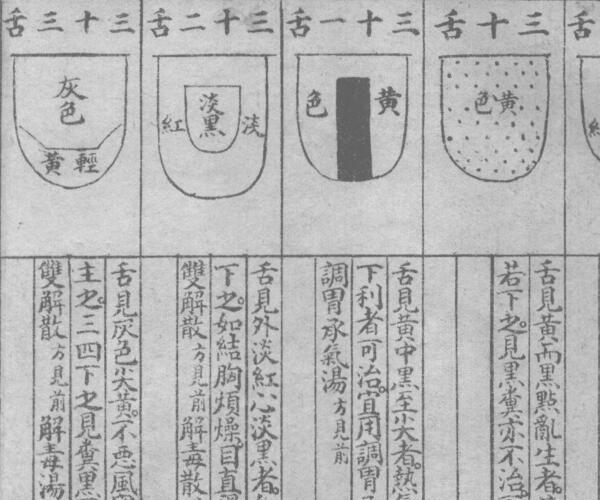 三十舌
黄色
舌見黄而黑㸃亂生者
若下之見黑糞亦不治
三十一舌
黄色
舌見黄中黑至尖者熱
下利者可治宜用調胃
調胃承氣湯方見前
三十二舌
淡紅
淡黑
舌見外淡紅心淡黑者
下之如結胸煩燥目直
雙解散方見前解毒散
三十三舌
灰色
輕黄
舌見灰色尖黄不惡風
主之三四下之見糞黑
雙解散方見前解毒湯
舌